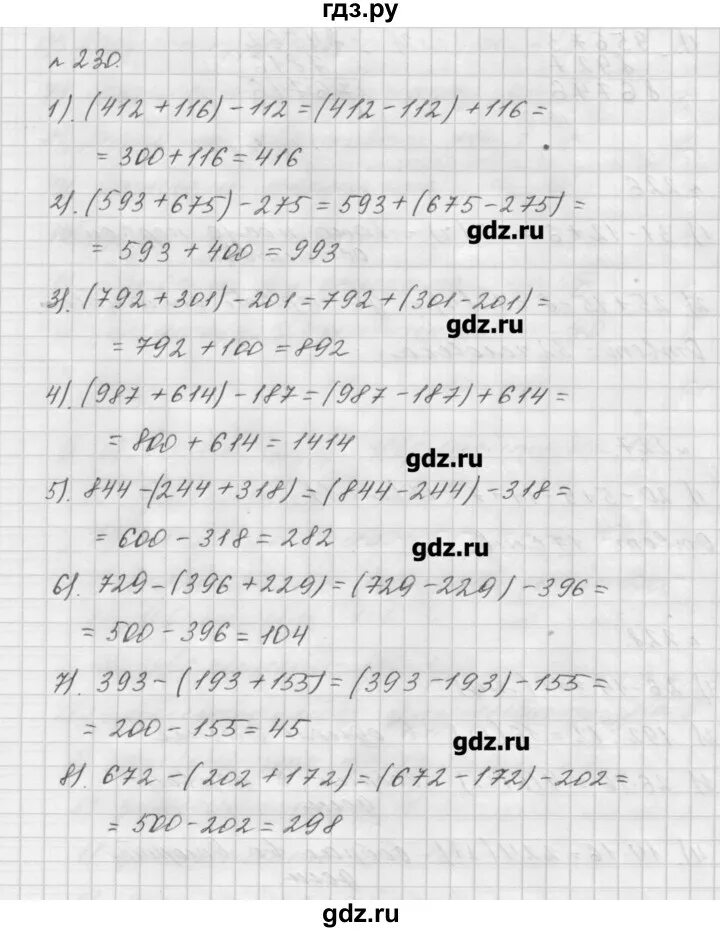 гдз.ру
№ 230.
1). (412 + 116) - 112 = (412 - 112) + 116 =
= 300 + 116 = 416
2). (593 + 675) - 275 = 593 + (675 - 275) =
gdz.ru
= 593 + 400 = 993
3). (792 + 301) - 201 = 792 + (301 - 201) =
gdz.ru
= 792 + 100 = 892
4). (987 + 614) - 187 = (987 - 187) + 614 =
= 800 + 614 = 1414
gdz.ru
5). 844 - (244 + 318) = (844 - 244) - 318 =
= 600 - 318 = 282
gdz.ru
6). 729 - (396 + 229) = (729 - 229) - 396 =
= 500 - 396 = 104
7). 393 - (193 + 155) = (393 - 193) - 155 =
= 200 - 155 = 45
gdz.ru
8). 672 - (202 + 172) = (672 - 172) - 202 =
= 500 - 202 = 298
gdz.ru